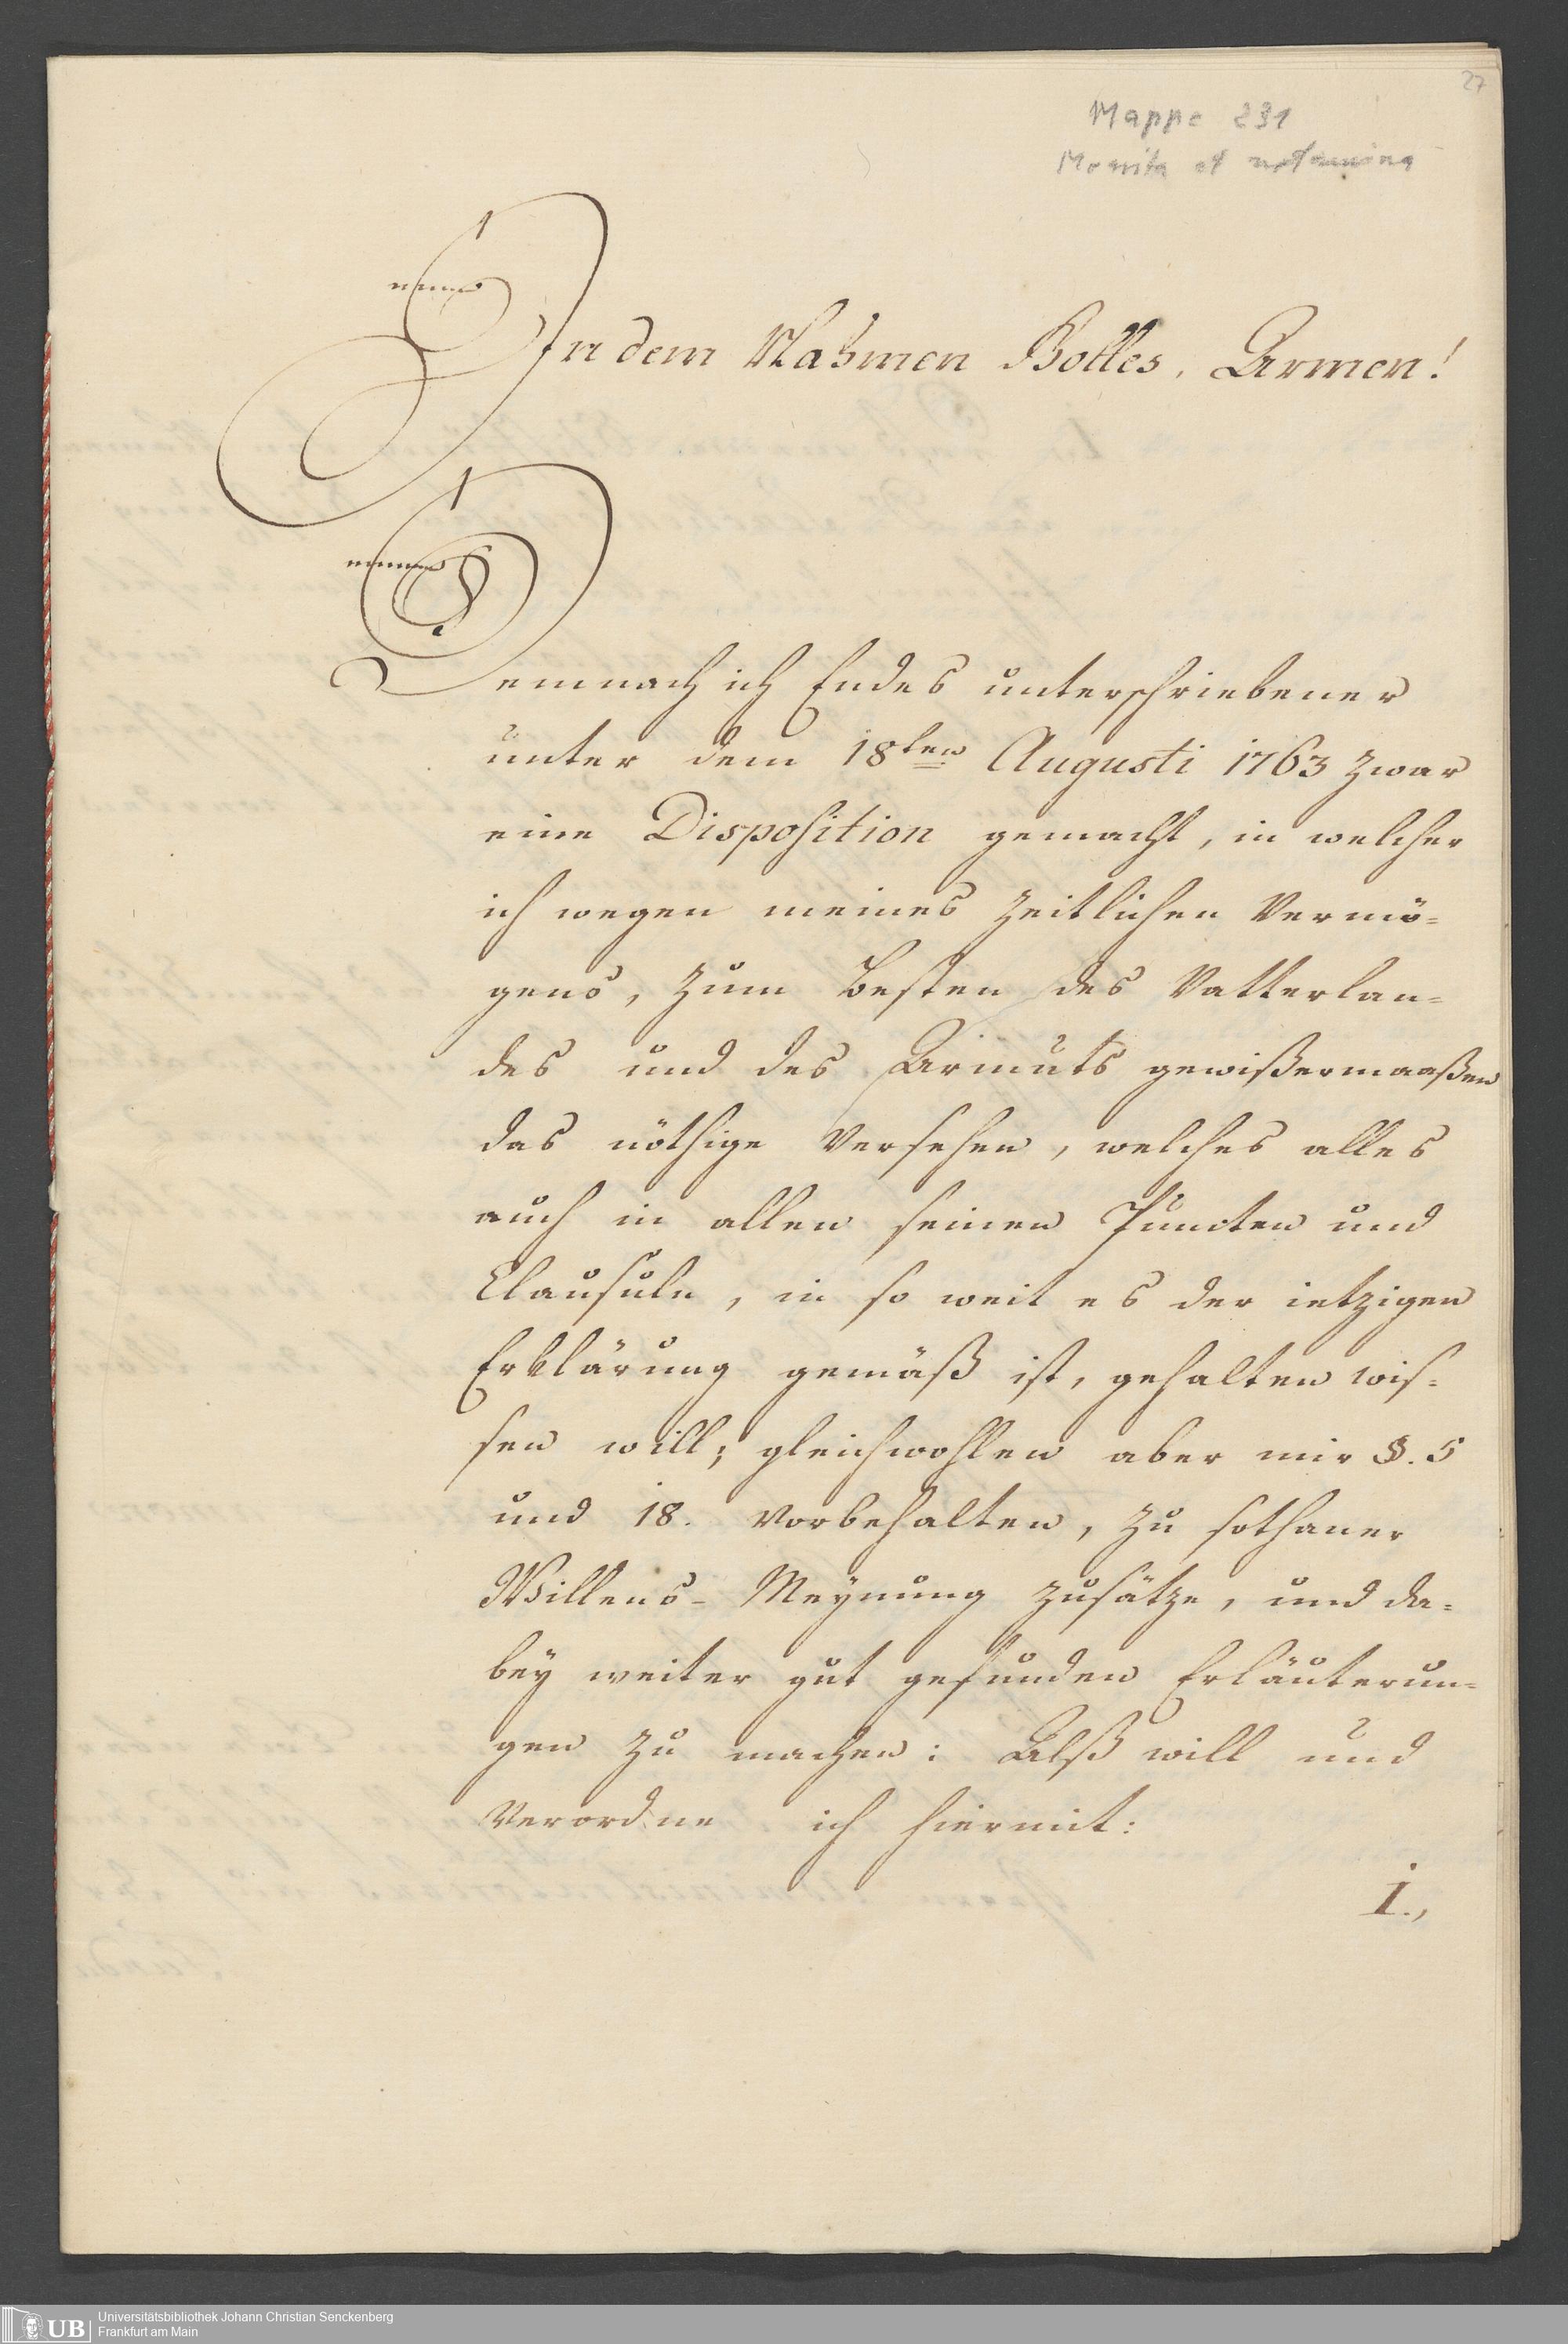 27
Mappe 231
Monita et notamina
In dem Nahmen Gottes, Amen!
Demnach ich Endes unterschriebener
unter dem 18ten Augusti 1763 zwar
eine Disposition gemacht, in welcher
ich wegen meines zeitlichen Vermö=
gens, zum Besten des Vatterlan=
des und des Armuts gewißermaaßen
das nöthige versehen, welches alles
auch in allen seinen Puncten und
Clausuln, in so weit es der ietzigen
Erklärung gemäß ist, gehalten wis=
sen will; gleichwohlen aber mir §. 5
und 18. vorbehalten, zu sothaner
Willens-Meynung zusätze, und da=
bey weiter gut gefunden Erläuterun=
gen zu machen: Alß will und
verordne ich hiermit:
1.,
UB
Universitätsbibliothek Johann Christian Senckenberg
Frankfurt am Main